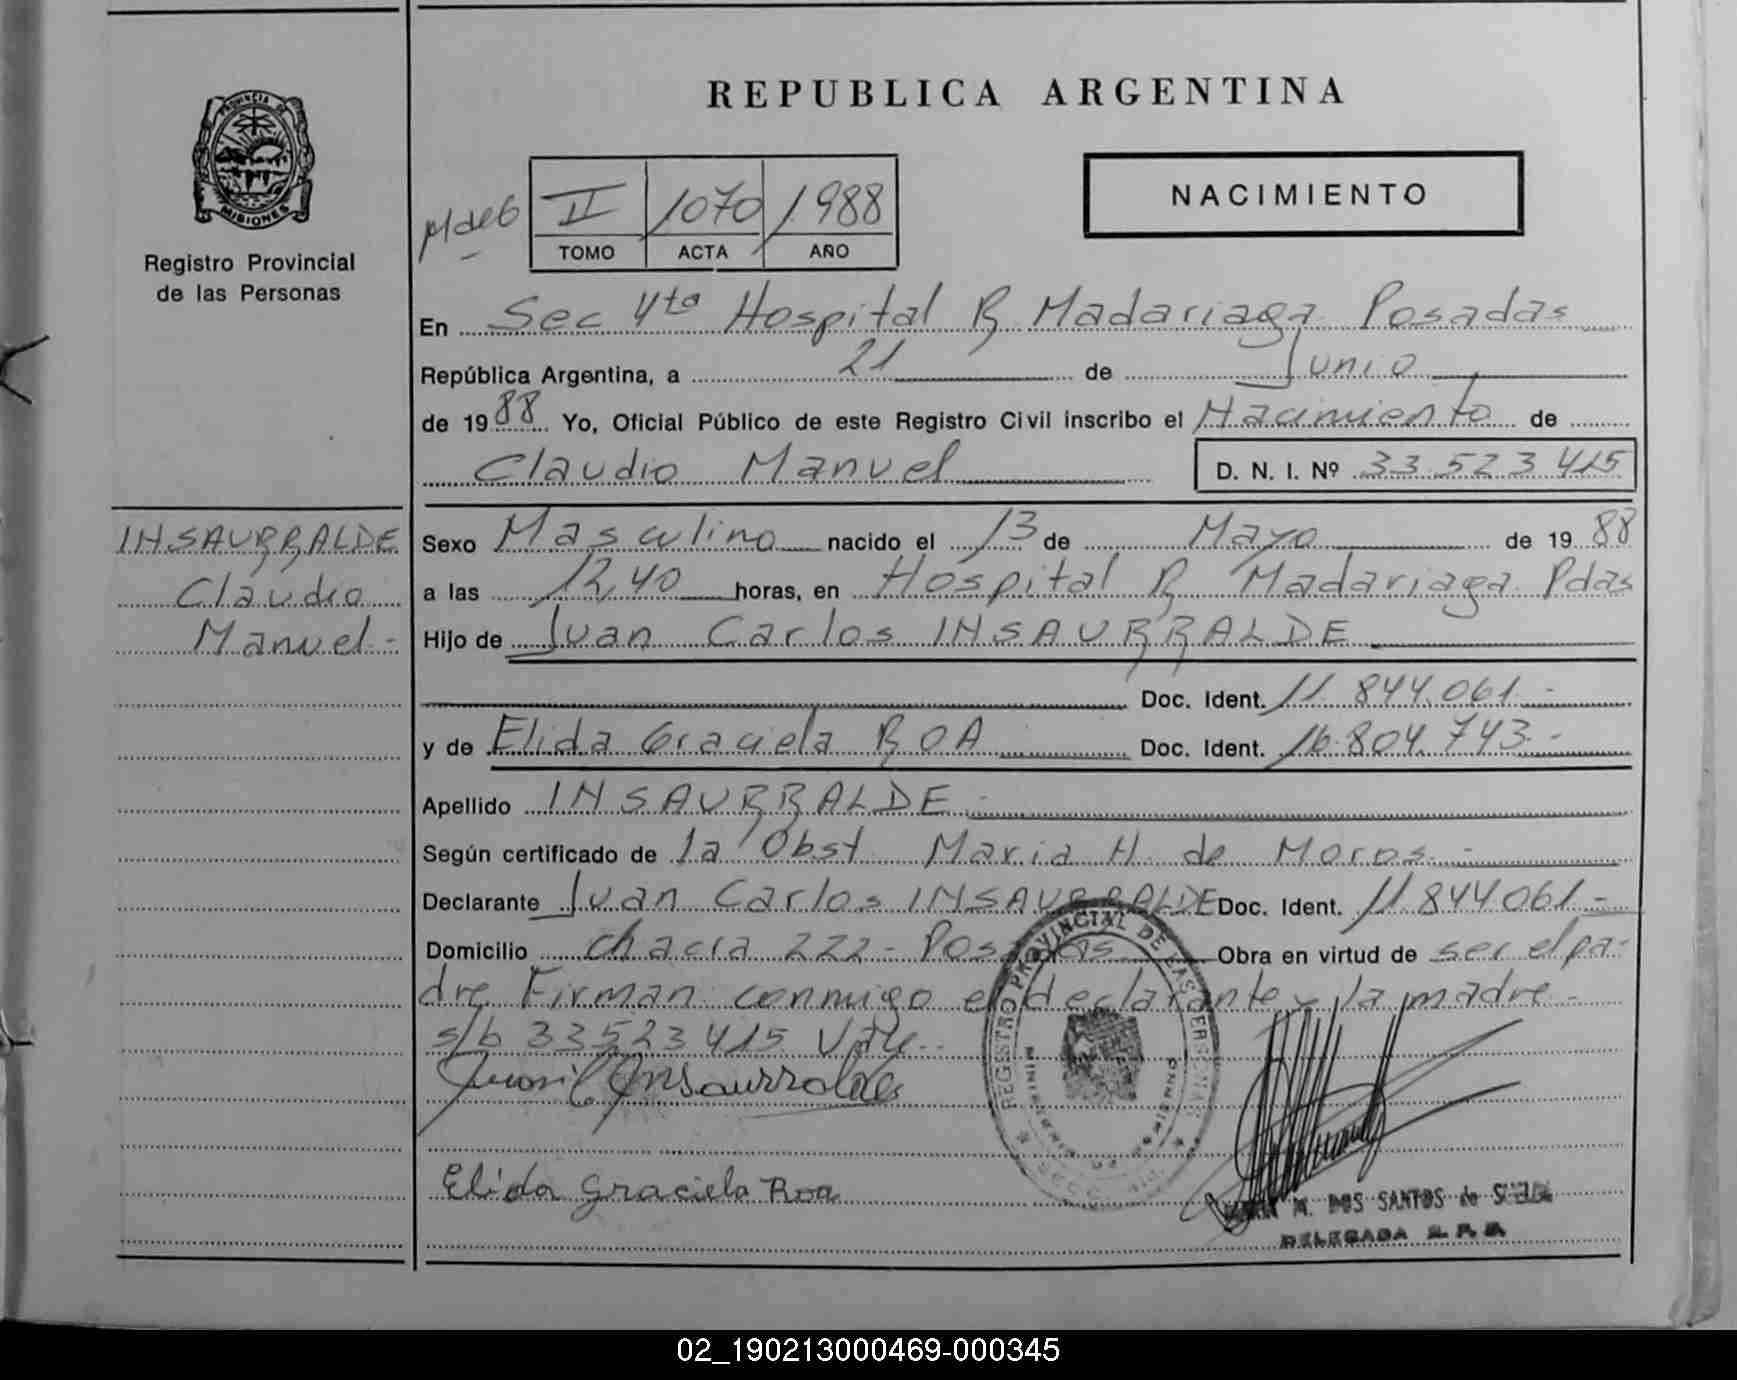 PROVINCIA DE
MISIONES
Registro Provincial
de las Personas
INSAURRALDE
Claudio
Manuel -
REPUBLICA ARGENTINA
NACIMIENTO
II 1070 1988
TOMO ACTA AÑO
En Sec 4ta Hospital R Madariaga Posadas
República Argentina, a 21 de Junio
de 1988 Yo, Oficial Público de este Registro Civil inscribo el Nacimiento de
Claudio Manuel D. N. I. Nº 33 523 415
Sexo Masculino nacido el 13 de Mayo de 1988
a las 12,40 horas, en Hospital R Madariaga Pdas
Hijo de Juan Carlos INSAURRALDE
Doc. Ident. 11 844.061 -
y de Elida Graciela ROA Doc. Ident. 16.804.743 -
Apellido INSAURRALDE -
Según certificado de la Obst Maria H. de Moros -
Declarante Juan Carlos INSAURRALDE Doc. Ident. 11 844 061 -
Domicilio chacra 222 - Posadas Obra en virtud de ser el pa-
dre Firman conmigo el declarante y la madre -
s/b 33523415 Vale
Juan C Insaurralde
Elida Graciela Roa
REGISTRO PROVINCIAL DE LAS PERSONAS
MINISTERIO DE GOBIERNO
M. DOS SANTOS de
DELEGADA R. P. P.
02_190213000469-000345